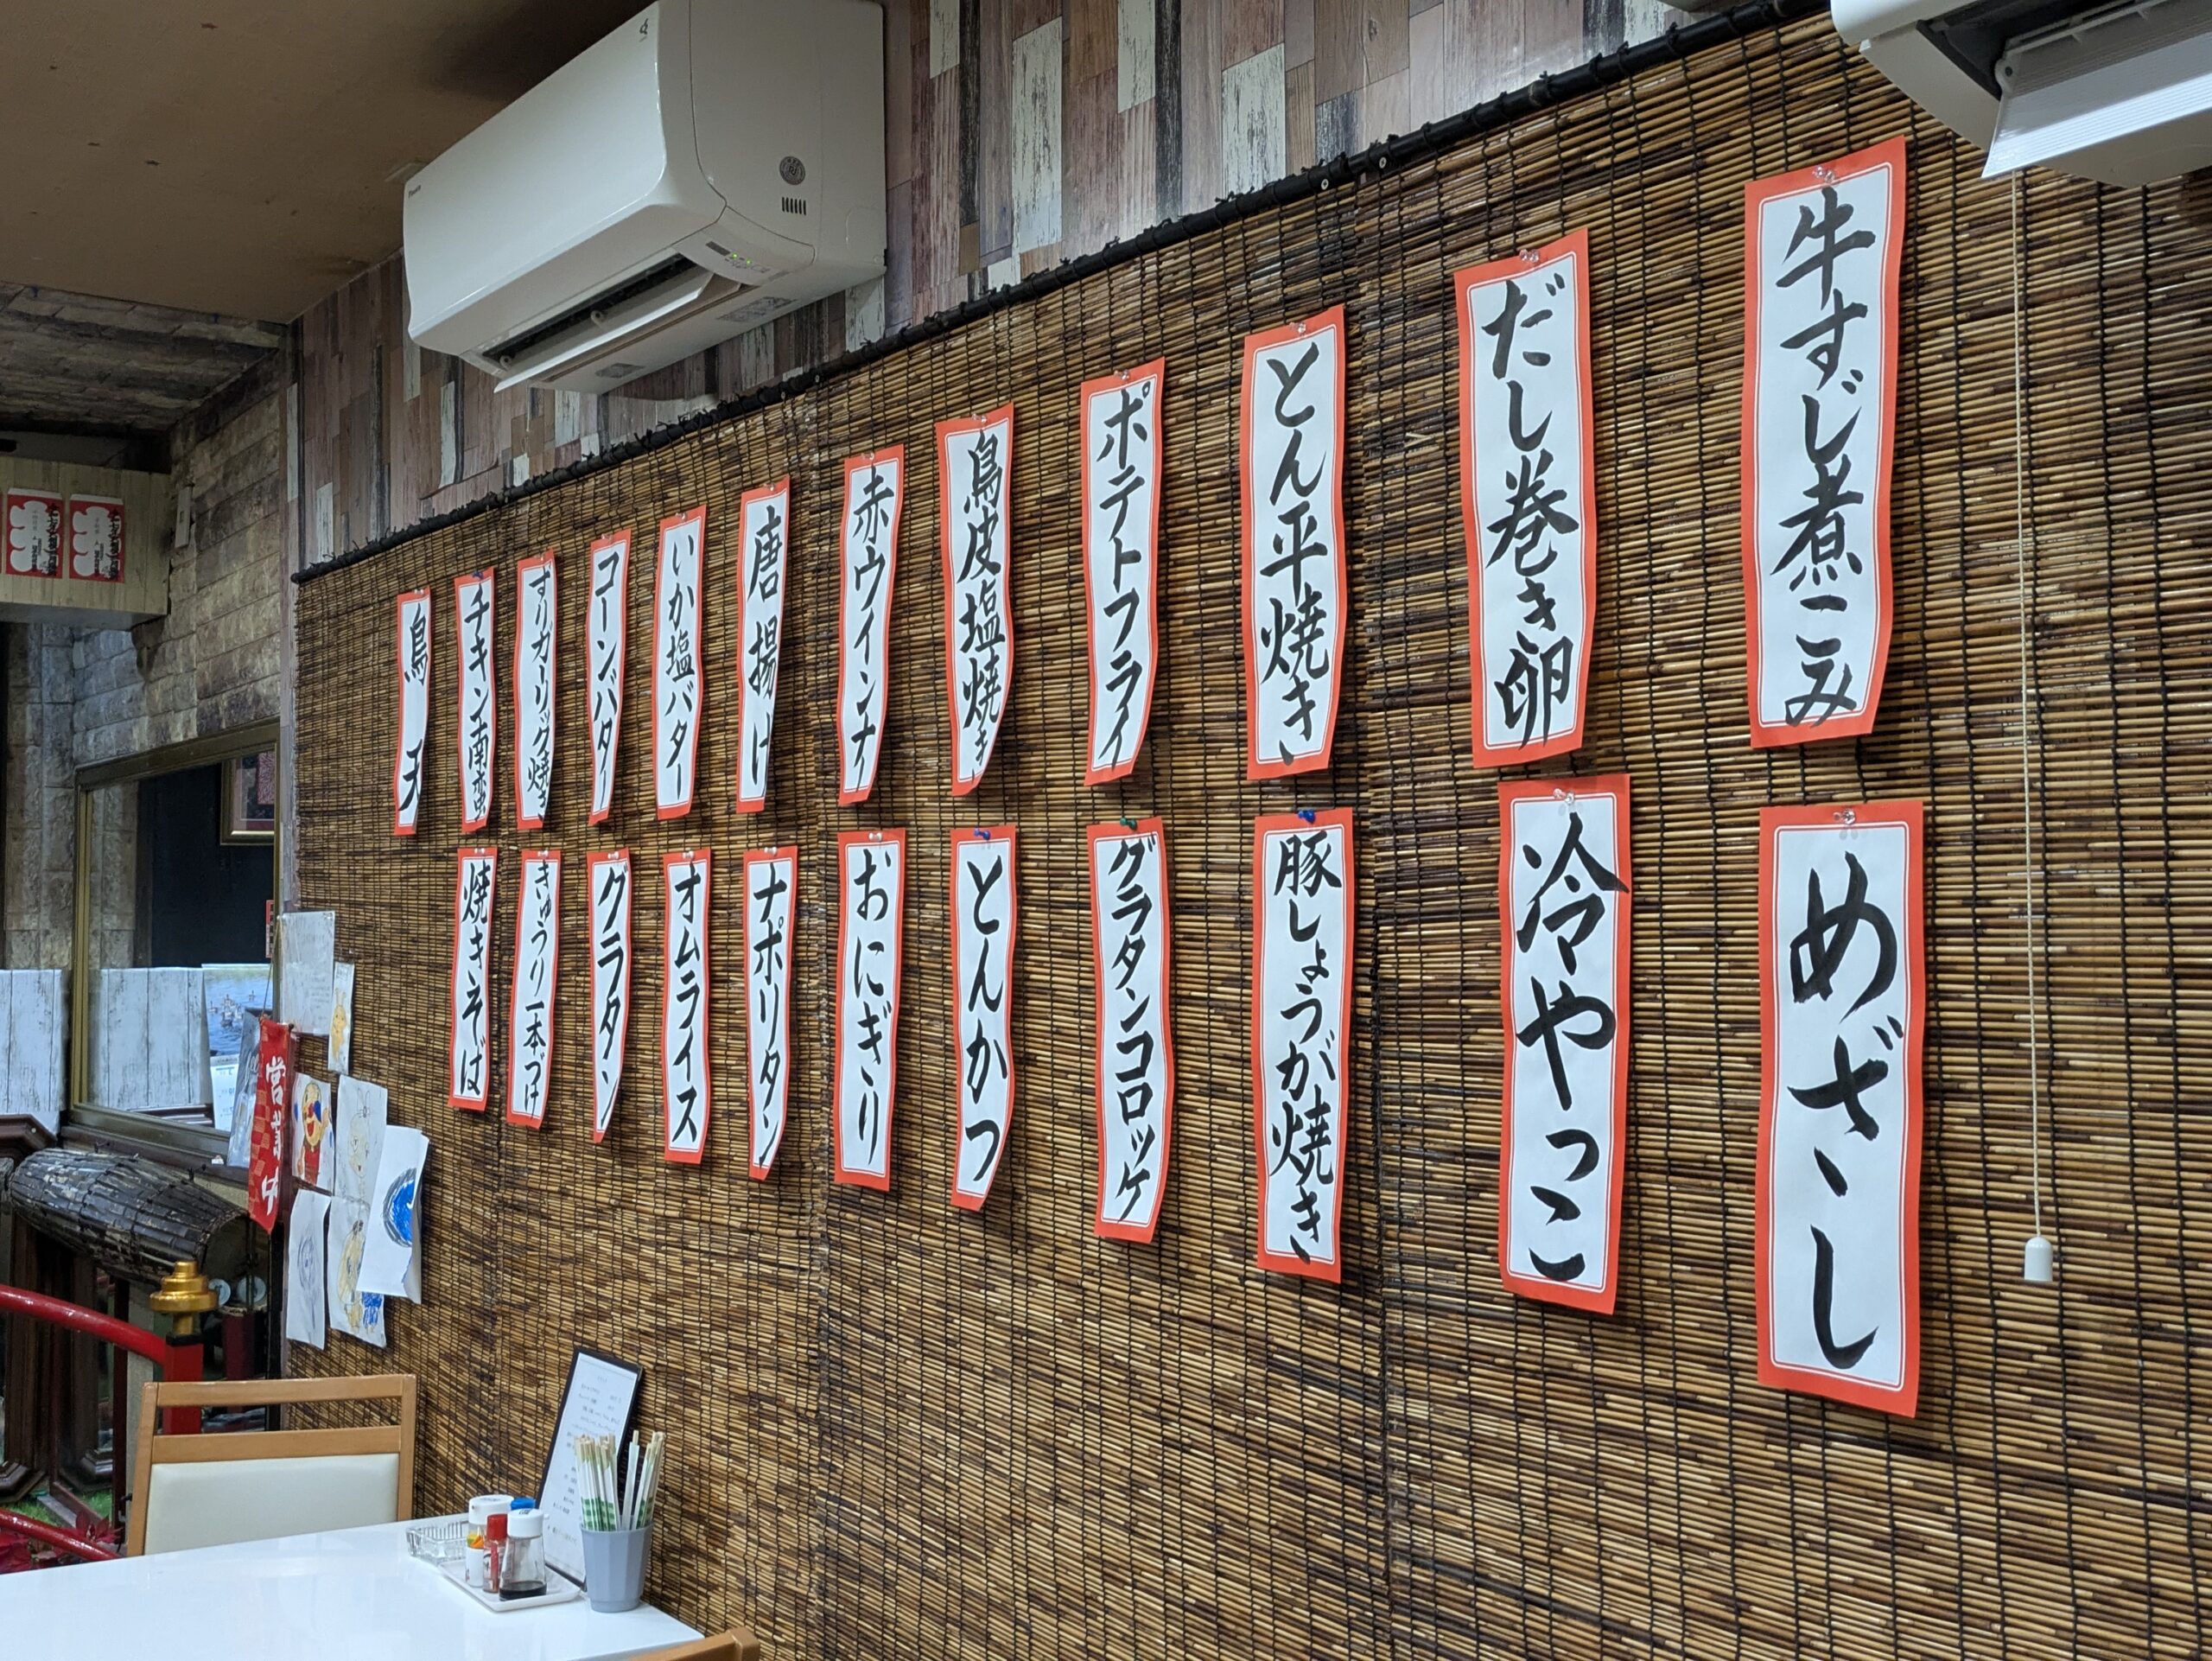 牛すじ煮こみ
だし巻き卵
とん平焼き
ポテトフライ
鳥皮塩焼き
赤ウインナー
唐揚げ
いか塩バター
コーンバター
すりガーリック焼き
チキン南蛮
鳥天
めざし
冷やっこ
豚しょうが焼き
グラタンコロッケ
とんかつ
おにぎり
ナポリタン
オムライス
グラタン
きゅうり一本づけ
焼きそば
営業中